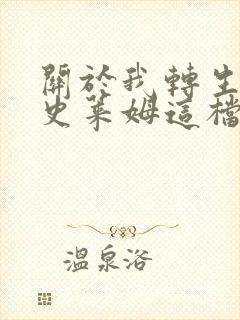 關於我轉生
史萊姆這檔
溫泉浴